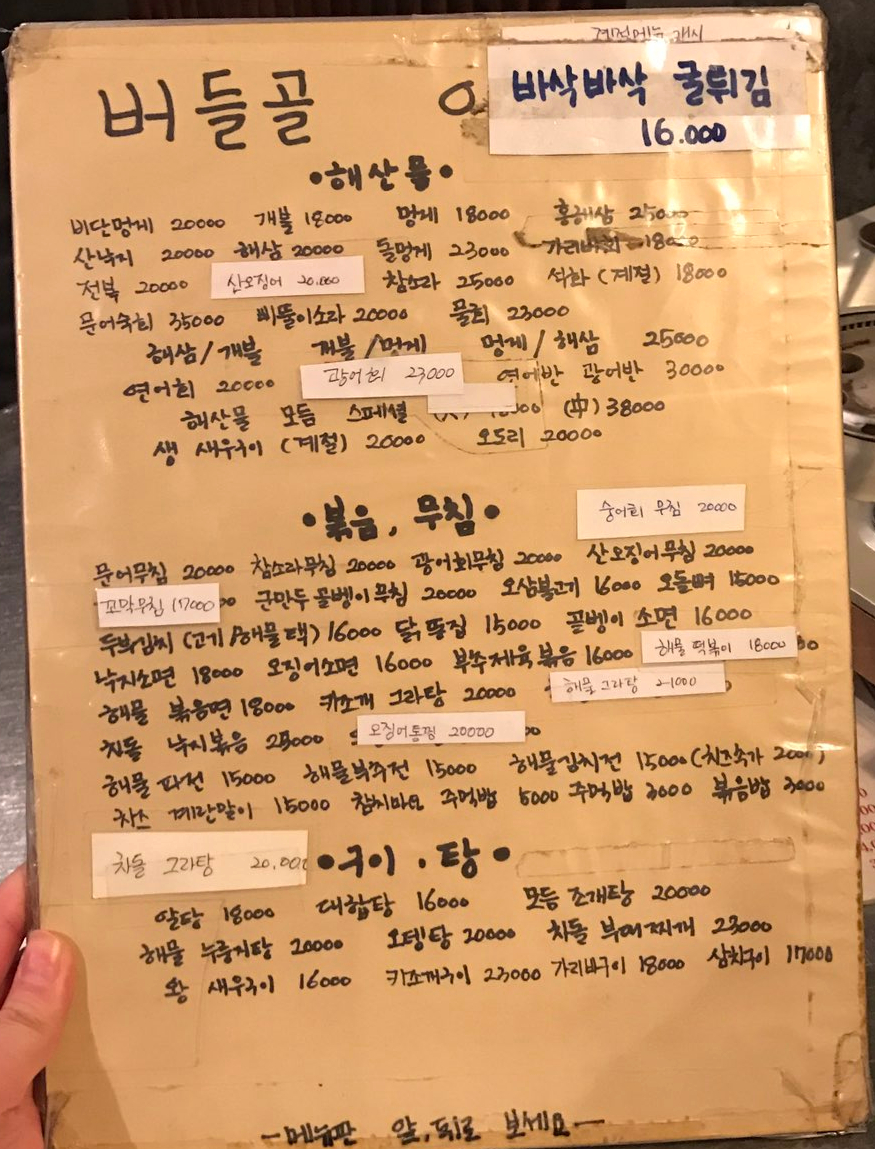 계절메뉴 개시
버들골
바삭바삭 굴튀김
16.000
•해산물•
비단멍게 20000 개불 18000 멍게 18000 홍해삼 25000
산낙지 20000 해삼 20000 돌멍게 23000 가리비회 18000
전복 20000 산오징어 20.000 참소라 25000 석화 (계절) 18000
문어숙회 35000 삐뚤이소라 20000 물회 23000
해삼/개불 개불/멍게 멍게/해삼 25000
연어회 20000 광어회 23000 연어반 광어반 30000
해산물 모듬 스페셜 (中) 38000
생 새우구이 (계절) 20000 오도리 20000
•볶음, 무침• 숭어회 무침 20000
문어무침 20000 참소라무침 20000 광어회무침 20000 산오징어무침 20000
꼬막무침 17000 군만두 골벵이 무침 20000 오삼불고기 16000 오돌뼈 15000
두부김치 (고기/해물 택) 16000 닭똥집 15000 골벵이 소면 16000
낙지소면 18000 오징어소면 16000 부추제육볶음 16000 해물 떡볶이 18000
해물 볶음면 18000 키조개 그라탕 20000 해물 그라탕 21000
차돌 낙지볶음 25000 오징어통찜 20000
해물 파전 15000 해물부추전 15000 해물김치전 15000 (치즈추가 2000)
치즈 계란말이 15000 참치마요 주먹밥 5000 주먹밥 3000 볶음밥 3000
차돌 그라탕 20.000 •구이 . 탕•
알탕 18000 대합탕 16000 모듬 조개탕 20000
해물 누룽지탕 20000 오뎅탕 20000 차돌 부대찌개 23000
왕 새우구이 16000 키조개구이 23000 가리비구이 18000 삼치구이 17000
-메뉴판 앞,뒤로 보세요-